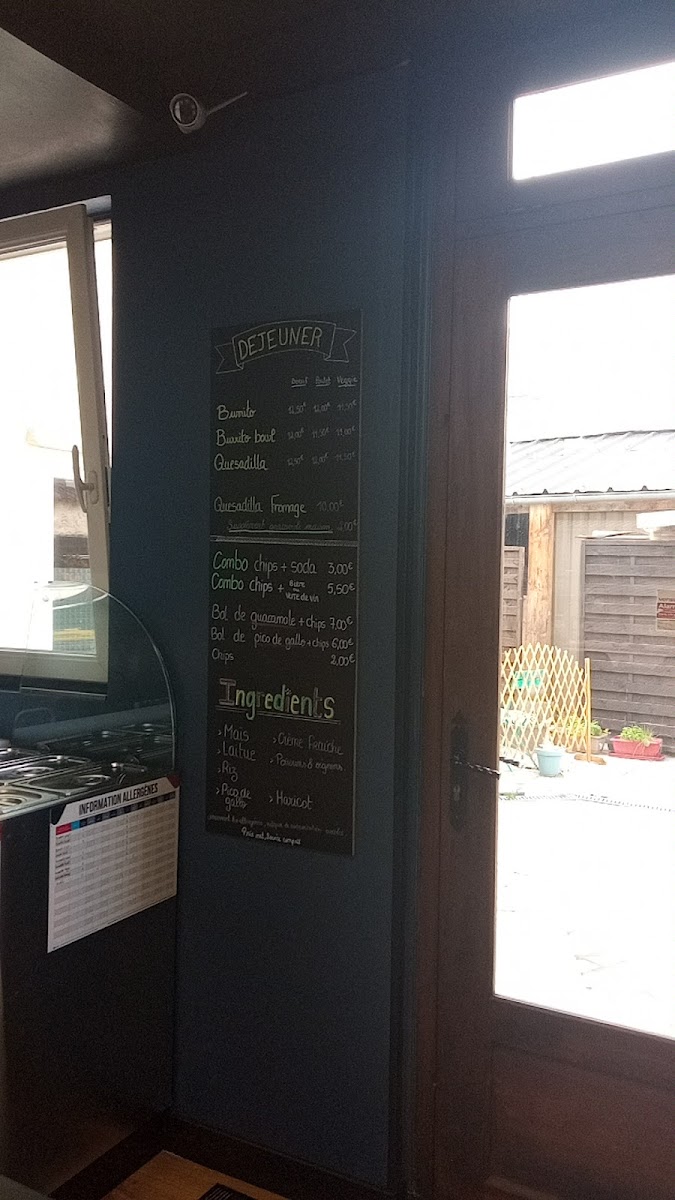 DEJEUNER
Boeuf Poulet Veggie
Burrito 12,50€ 12,00€ 11,50€
Burrito bowl 12,00€ 11,50€ 11,00€
Quesadilla 12,50€ 12,00€ 11,50€
Quesadilla Fromage 10,00€
2,00€
Combo chips + soda 3,00€
Combo chips + BIÈRE ou VERRE DE VIN 5,50€
Bol de guacamole + chips 7,00€
Bol de pico de gallo + chips 6,00€
Chips 2,00€
Ingredients
› Maïs › Crème Fraîche
› Laitue › Poivrons & oignons
› Riz
› Pico de gallo › Haricot
INFORMATION ALLERGÈNES